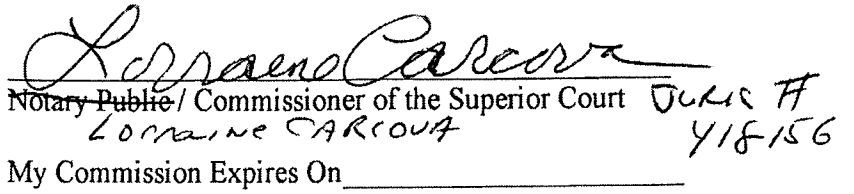 Lorraine Carcova
Notary Public / Commissioner of the Superior Court Juris #
Lorraine CARCOVA 418156
My Commission Expires On